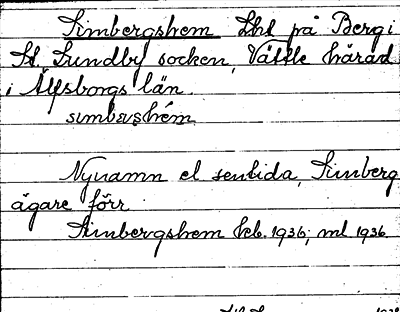 Simbergshem Lht på Berg i
St. Lundby socken, Vättle härad
i Älfsborgs län.
Nynamn el sentida, Simberg
ägare förr
Simbergshem keb. 1936; ml 1936